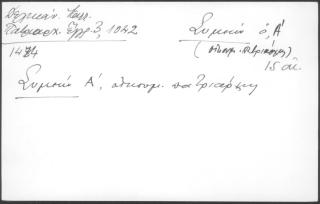 Δελικάν. Καλλ.
Πατριαρχ. Έγγρ. 3, 1042
1474
Συμεών ὁ, Α'
(οἰκουμ. πατριάρχης)
15 αἰ.
Συμεών Α', οἰκουμ. πατριάρχη